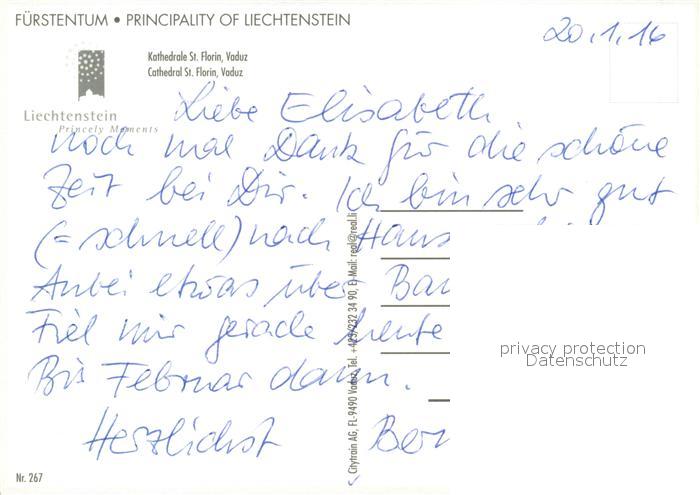 FÜRSTENTUM • PRINCIPALITY OF LIECHTENSTEIN
20.1.16
Kathedrale St. Florin, Vaduz
Cathedral St. Florin, Vaduz
Liechtenstein
Princely Moments
Liebe Elisabeth
noch mal Dank für die schöne
Zeit bei Dir. Ich bin sehr gut
(= schnell) nach Haus
Anbei etwas über Bau
Fiel mir gerade heute
Bis Februar dann.
Herzlichst Ber
Citytrain AG, FL-9490 Vaduz, Tel. +423/232 34 90, E-Mail: real@real.li
privacy protection
Datenschutz
Nr. 267